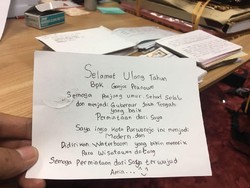 Selamat Ulang Tahun
Bpk Ganjar Pranowo
Semoga Panjang umur, Sehat Selalu
dan menjadi Gubernur Jawa Tengah
yang baik
Permintaan dari Saya
Saya ingin Kota Purworejo ini menjadi
Modern, dan
Adirikan Waterboom yang lebih menarik
Para Wisatawan datang
Semoga Permintaan dari Saya terwujud
Amin....